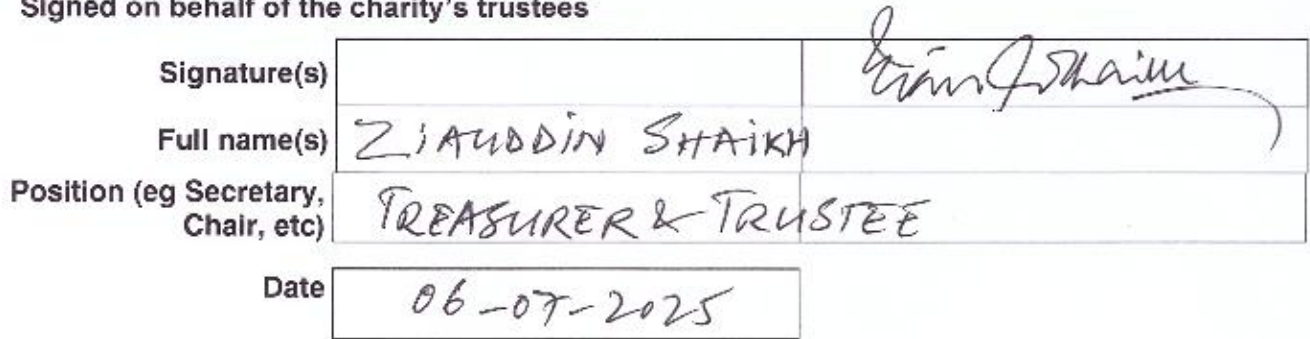 Signed on behalf of the charity's trustees
Signature(s)
Full name(s) ZIAUDDIN SHAIKH
Position (eg Secretary,
Chair, etc) TREASURER & TRUSTEE
Date 06-07-2025